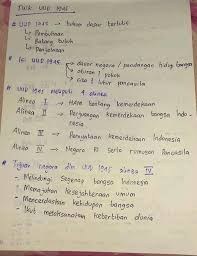 TWK UUD 1945
# UUD 1945 → hukum dasar tertulis
↳ Pembukaan
↳ Batang tubuh
↳ Penjelasan
# Isi UUD 1945 → dasar negara / pandangan hidup bangsa
→ aturan² pokok
→ cita² luhur pancasila
# UUD 1945 meliputi 4 alinea
Alinea I → HAM tentang kemerdekaan
Alinea II → Perjuangan kemerdekaan bangsa Indo-
nesia
Alinea III → Pernyataan kemerdekaan Indonesia
Alinea IV → Negara RI serta rumusan Pancasila
# Tujuan negara dlm UUD 1945 alinea IV
- Melindungi segenap bangsa Indonesia
- Memajukan kesejahteraan umum
- Mencerdaskan kehidupan bangsa
- Ikut melaksanakan ketertiban dunia